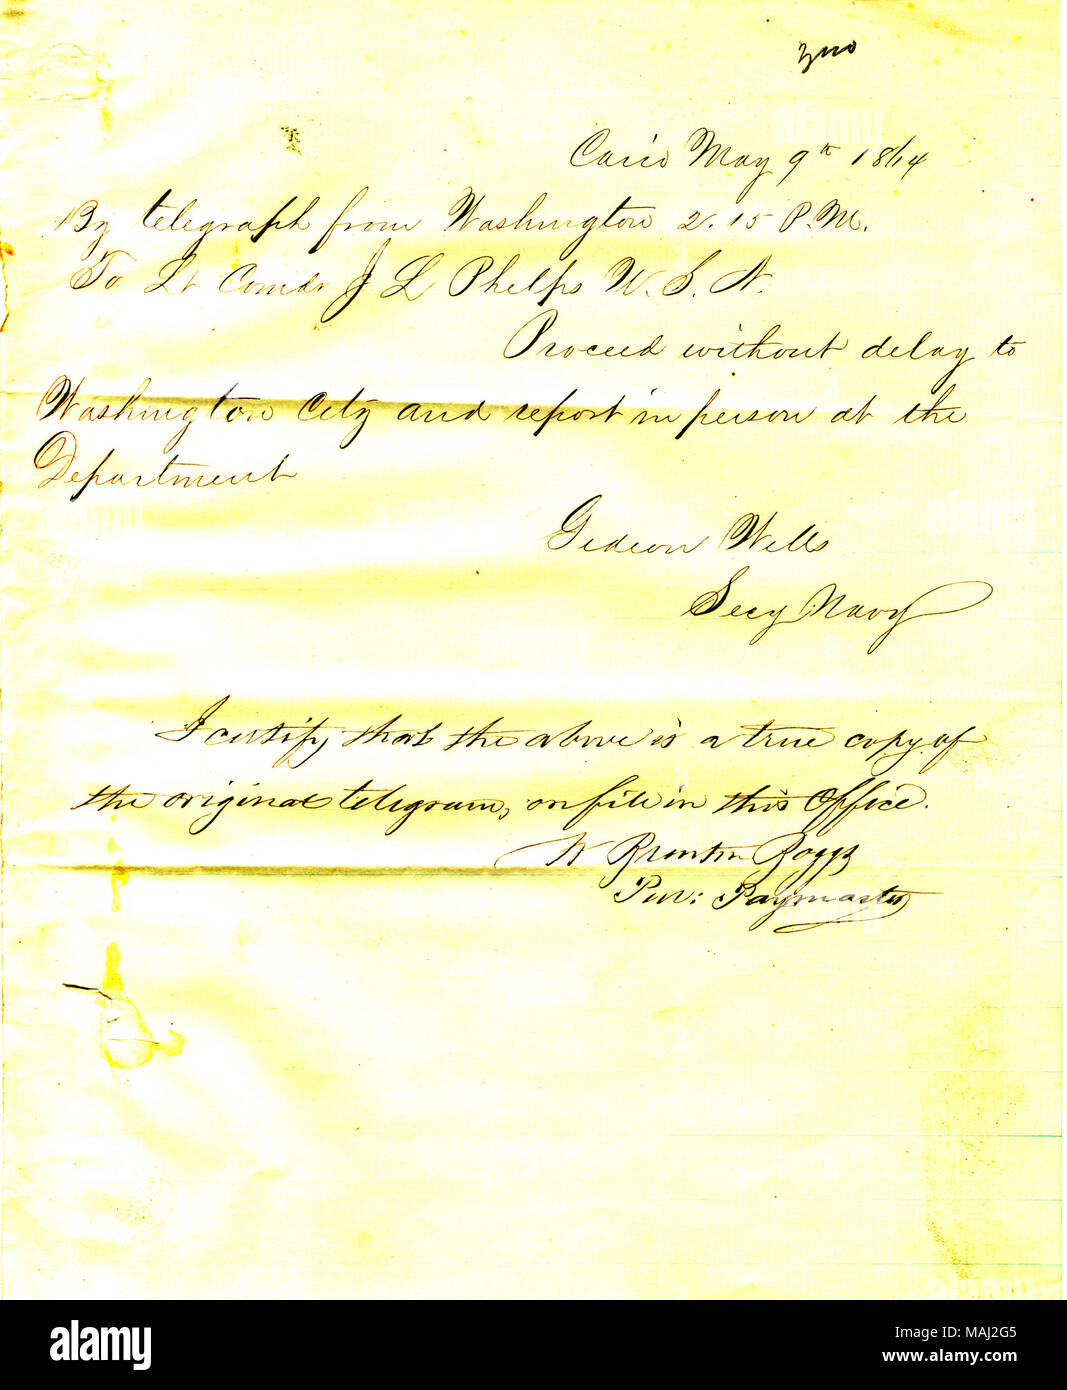 Cairo May 9th 1864
By telegraph from Washington 2.15 P.M.
To Lt Comdr J L Phelps U.S.N.
Proceed without delay to
Washington City and report in person at the
Department
Gideon Wells
Secy Navy
I certify that the above is a true copy of
the original telegram, on file in this Office.
W Brenton Boggs
Pur: Paymaster
alamy
Image ID: MAJ2G5
www.alamy.com